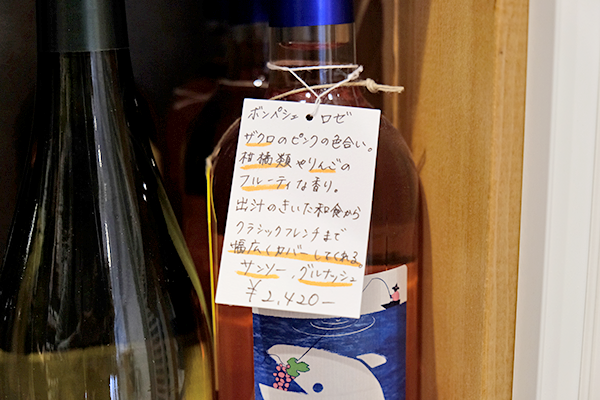 ボンペシェ ロゼ
ザクロのピンクの色合い。
柑橘類やりんごの
フルーティな香り。
出汁のきいた和食から
クラシックフレンチまで
幅広くカバーしてくれる。
サンソー、グルナッシュ
¥2,420-